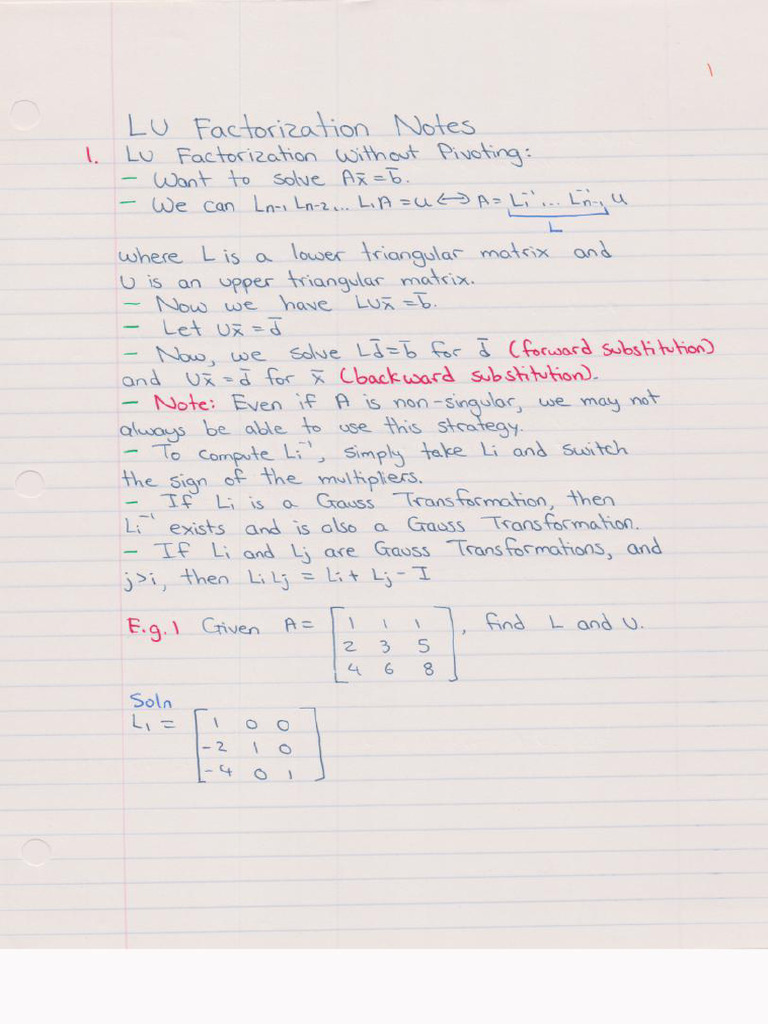 1
LU Factorization Notes
1. LU Factorization Without Pivoting:
- Want to solve Ax̄ = b̄.
- We can Ln-1 Ln-2... L1A = U ⟷ A = L1⁻¹... Ln-1⁻¹ U
L
where L is a lower triangular matrix and
U is an upper triangular matrix.
- Now we have LUx̄ = b̄.
- Let Ux̄ = d̄
- Now, we solve Ld̄ = b̄ for d̄ (forward substitution)
and Ux̄ = d̄ for x̄ (backward substitution).
- Note: Even if A is non-singular, we may not
always be able to use this strategy.
- To compute Li⁻¹, simply take Li and switch
the sign of the multipliers.
- If Li is a Gauss Transformation, then
Li⁻¹ exists and is also a Gauss Transformation.
- If Li and Lj are Gauss Transformations, and
j>i, then LiLj = Li + Lj - I
E.g. 1 Given A = [1 1 1], find L and U.
2 3 5
4 6 8
Soln
L1 = [1 0 0]
-2 1 0
-4 0 1